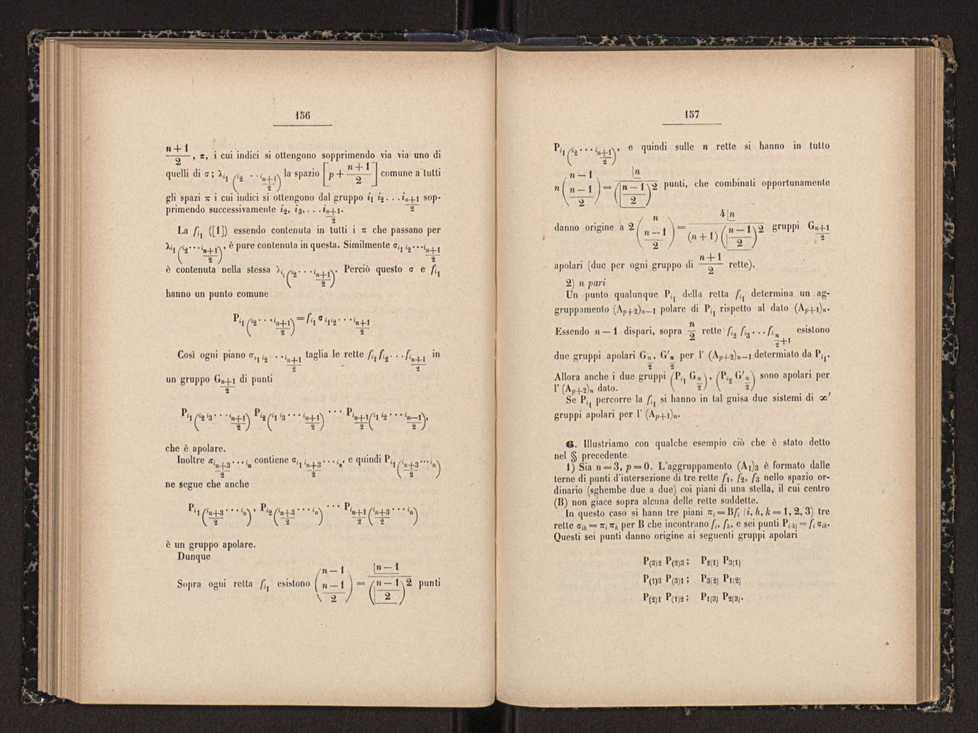 156
n+1/2, π, i cui indici si ottengono sopprimendo via via uno di
quelli di σ; λ_{i_1(i_2...i_{(n+1)/2})} la spazio [p + (n+1)/2] comune a tutti
gli spazi π i cui indici si ottengono dal gruppo i_1 i_2 ... i_{(n+1)/2} sop-
primendo successivamente i_2, i_3, ... i_{(n+1)/2}.
La f_{i_1} ([1]) essendo contenuta in tutti i π che passano per
λ_{i_1(i_2...i_{(n+1)/2})}, è pure contenuta in questa. Similmente σ_{i_1 i_2...i_{(n+1)/2}}
è contenuta nella stessa λ_{i_1(i_2...i_{(n+1)/2})}. Perciò questo σ e f_{i_1}
hanno un punto comune
P_{i_1(i_2...i_{(n+1)/2})} = f_{i_1} σ_{i_1 i_2...i_{(n+1)/2}}
Così ogni piano σ_{i_1 i_2...i_{(n+1)/2}} taglia le rette f_{i_1} f_{i_2} ... f_{i_{(n+1)/2}} in
un gruppo G_{(n+1)/2} di punti
P_{i_1(i_2 i_3...i_{(n+1)/2})} P_{i_2(i_1 i_3...i_{(n+1)/2})} ... P_{i_{(n+1)/2}(i_1 i_2...i_{(n-1)/2})},
che è apolare.
Inoltre π_{i_{(n+3)/2}...i_n} contiene σ_{i_1 i_{(n+3)/2}...i_n}, e quindi P_{i_1(i_{(n+3)/2}...i_n)}
ne segue che anche
P_{i_1(i_{(n+3)/2}...i_n)}, P_{i_2(i_{(n+3)/2}...i_n)} ... P_{i_{(n+1)/2}(i_{(n+3)/2}...i_n)}
è un gruppo apolare.
Dunque
Sopra ogni retta f_{i_1} esistono (n-1 / (n-1)/2) = |n-1 / (|(n-1)/2)² punti
157
P_{i_1(i_2...i_{(n+1)/2})}, e quindi sulle n rette si hanno in tutto
n (n-1 / (n-1)/2) = |n / (|(n-1)/2)² punti, che combinati opportunamente
danno origine a 2 (n / (n-1)/2) = 4|n / (n+1)(|(n-1)/2)² gruppi G_{(n+1)/2}
apolari (due per ogni gruppo di (n+1)/2 rette).
2) n pari
Un punto qualunque P_{i_1} della retta f_{i_1} determina un ag-
gruppamento (A_{p+2})_{n-1} polare di P_{i_1} rispetto al dato (A_{p+1})_n.
Essendo n-1 dispari, sopra n/2 rette f_{i_2} f_{i_3} ... f_{i_{n/2+1}} esistono
due gruppi apolari G_{n/2}, G'_{n/2} per l' (A_{p+2})_{n-1} determiato da P_{i_1}.
Allora anche i due gruppi (P_{i_1} G_{n/2}), (P_{i_2} G'_{n/2}) sono apolari per
l' (A_{p+2})_n dato.
Se P_{i_1} percorre la f_{i_1} si hanno in tal guisa due sistemi di ∞'
gruppi apolari per l' (A_{p+1})_n.
6. Illustriamo con qualche esempio ciò che è stato detto
nel § precedente.
1) Sia n = 3, p = 0. L'aggruppamento (A_1)_3 è formato dalle
terne di punti d'intersezione di tre rette f_1, f_2, f_3 nello spazio or-
dinario (sghembe due a due) coi piani di una stella, il cui centro
(B) non giace sopra alcuna delle rette suddette.
In questo caso si hann tre piani π_i = Bf_i [i, h, k = 1, 2, 3] tre
rette σ_{ih} = π_i π_h per B che incontrano f_i, f_h, e sei punti P_{i(k)} = f_i σ_{ik}.
Questi sei punti danno origine ai seguenti gruppi apolari
P_{(3)2} P_{(2)3}; P_{2(1)} P_{3(1)}
P_{(1)3} P_{(3)1}; P_{3(2)} P_{1(2)}
P_{(2)1} P_{(1)2}; P_{1(3)} P_{2(3)}.